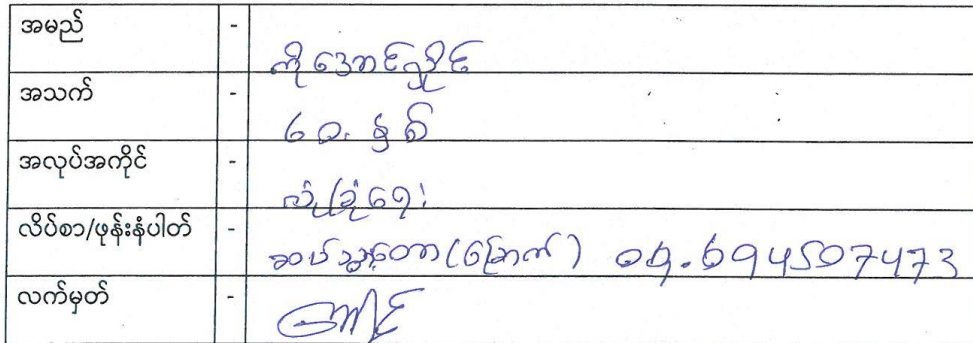 အမည် - ကိုအောင်လှိုင်
အသက် - ၆၀. နှစ်
အလုပ်အကိုင် - လုံခြုံရေး
လိပ်စာ/ဖုန်းနံပါတ် - (မြောက်) 09.694507473
လက်မှတ် -